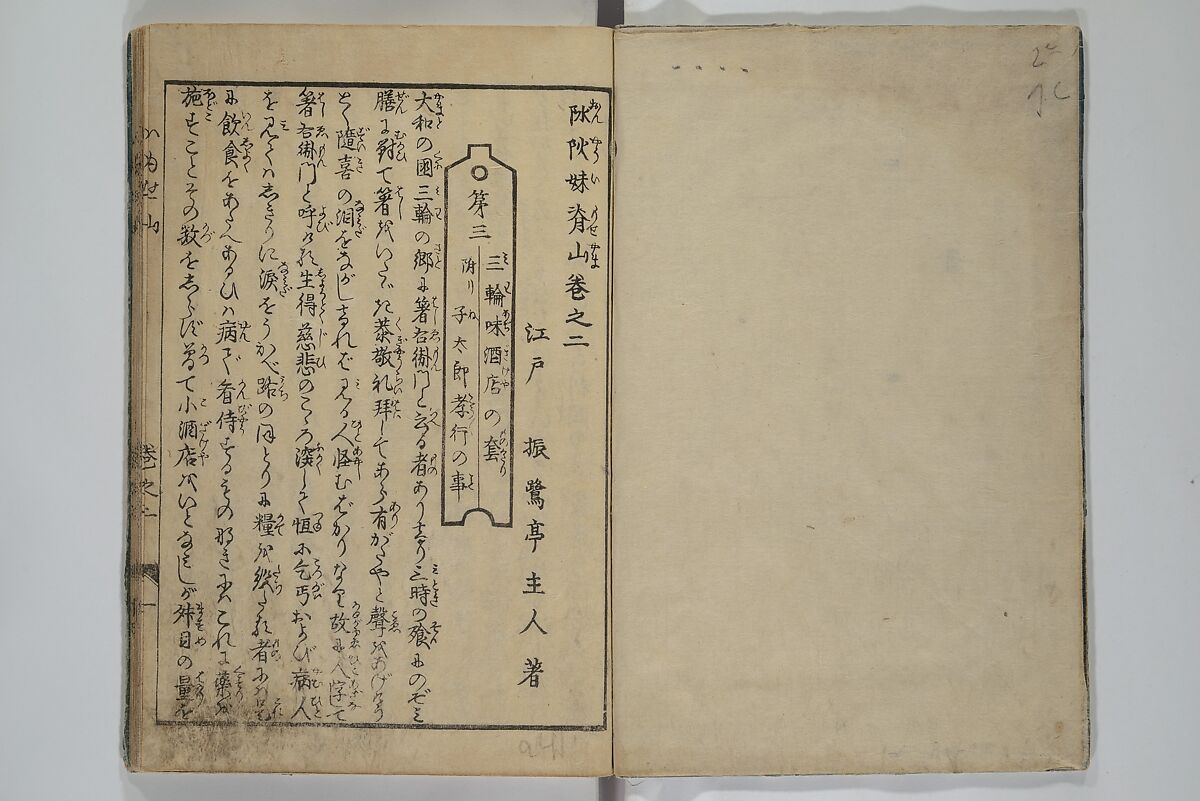 阥阦妹脊山巻之二
江戸 振鷺亭主人著
第三
三輪味酒店の套
附リ 子太郎孝行の事
大和の國三輪の郷に箸右衛門と云る者あり
三時の飧にのぞみ
膳に對て箸をいたゞき恭敬礼拝してあら有がたやと聲をあげ
隨喜の泪をながしければ見る人怪むばかりなり故に人字て
箸右衛門と呼ける生得慈悲のこゝろ深して恒に乞丐および病人
を見てハしきりに涙をうかべ路のほとりに糧を絶たる者に
に飲食をあたへあるひハ病て看侍するもの
なきにハこれに藥を
施すことその数をしらず曽て小酒店をいとなみしが舛目の量を
いもせ山
巻之二
一